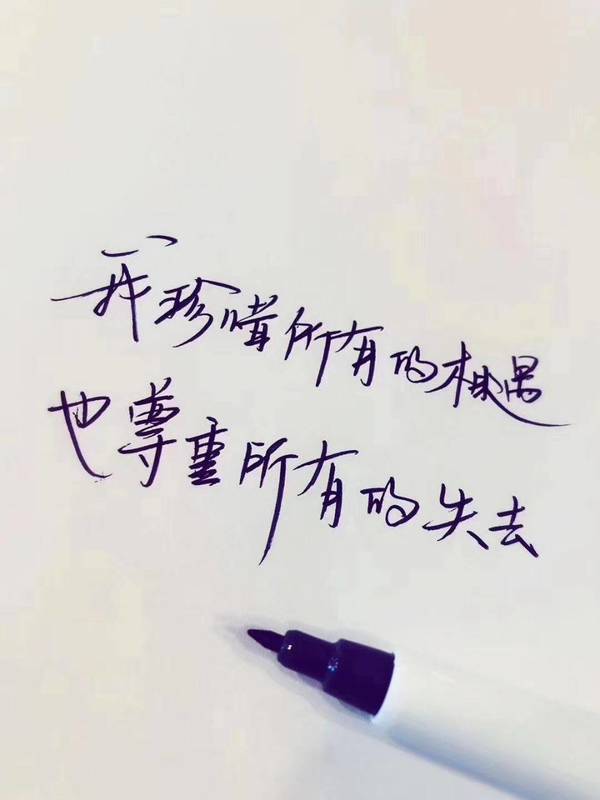 我珍惜所有的相遇
也尊重所有的失去